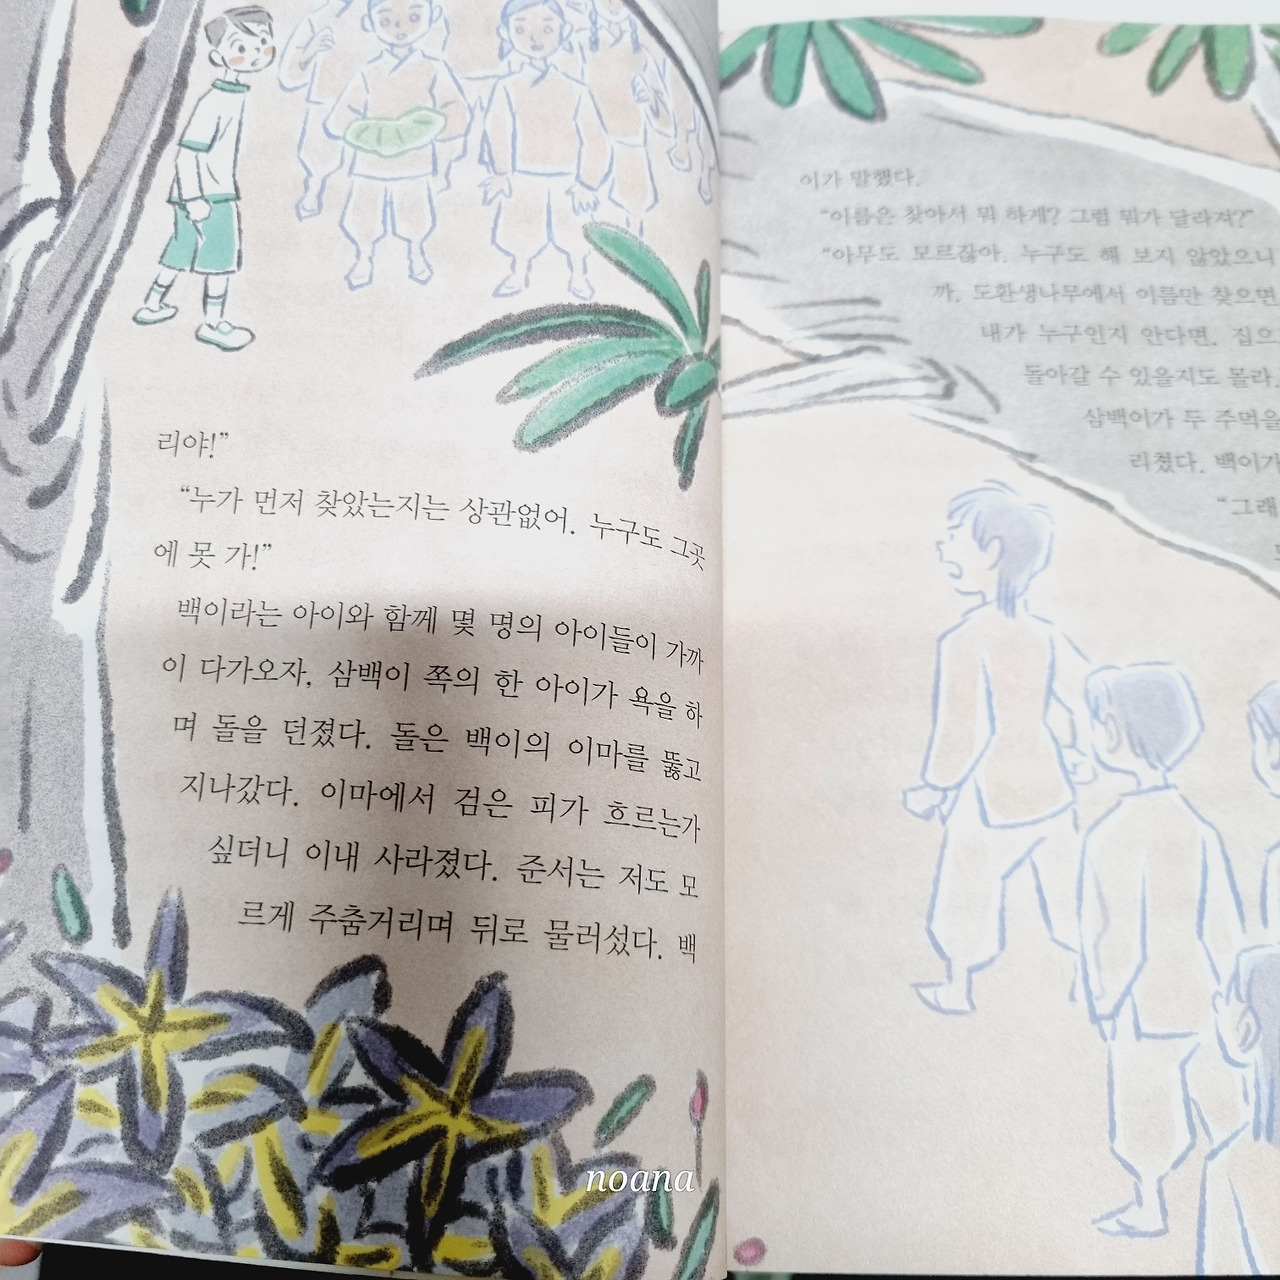 리야!”
“누가 먼저 찾았는지는 상관없어. 누구도 그곳
에 못 가!”
백이라는 아이와 함께 몇 명의 아이들이 가까
이 다가오자, 삼백이 쪽의 한 아이가 욕을 하
며 돌을 던졌다. 돌은 백이의 이마를 뚫고
지나갔다. 이마에서 검은 피가 흐르는가
싶더니 이내 사라졌다. 준서는 저도 모
르게 주춤거리며 뒤로 물러섰다. 백
noana
이가 말했다.
“이름은 찾아서 뭐 하게? 그럼 뭐가 달라져?”
“아무도 모르잖아. 누구도 해 보지 않았으니
까. 도환생나무에서 이름만 찾으면
내가 누구인지 안다면, 집으
돌아갈 수 있을지도 몰라
삼백이가 두 주먹을
리쳤다. 백이가
“그래